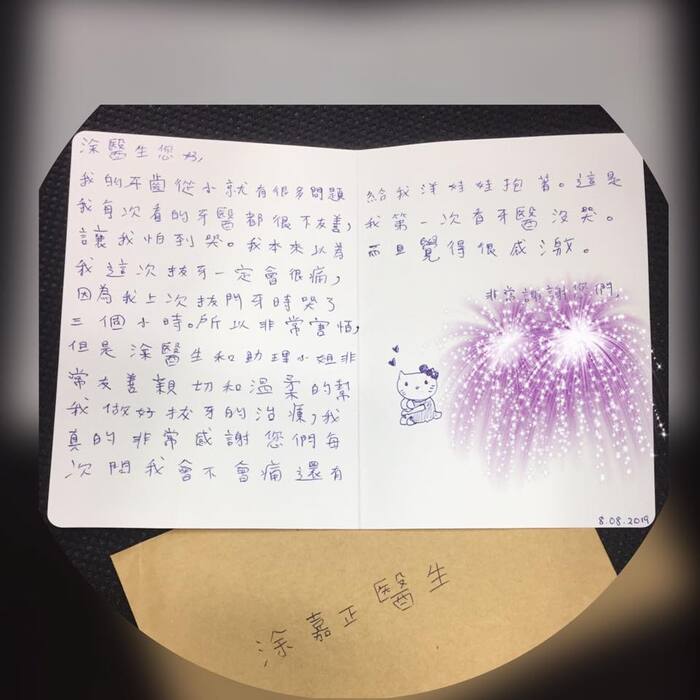 涂醫生您好,
我的牙齒從小就有很多問題
我每次看的牙醫都很不友善,
讓我怕到哭。我本來以為
我這次拔牙一定會很痛,
因為我上次拔門牙時哭了
三個小時。所以非常害怕,
但是涂醫生和助理小姐非
常友善親切和溫柔的幫
我做好拔牙的治療,我
真的非常感謝您們每
次問我會不會痛還有
給我洋娃娃抱著。這是
我第一次看牙醫沒哭。
而且覺得很感激。
非常謝謝您們,
8.08.2019
涂嘉正醫生